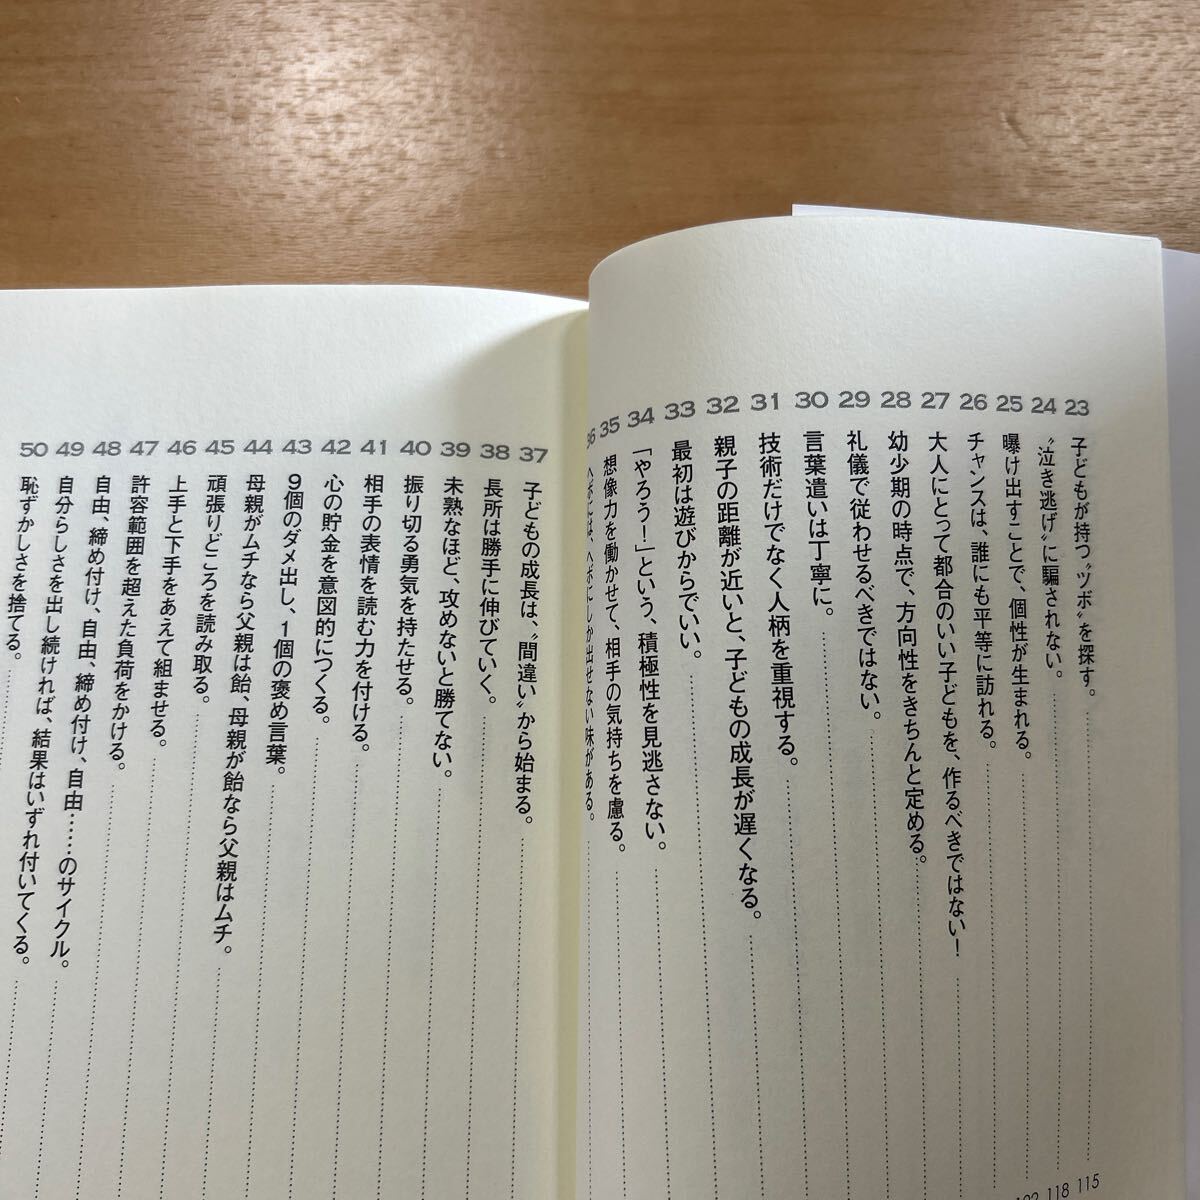 23 子どもが持つ〝ツボ〟を探す。 115
24 〝泣き逃げ〟に騙されない。 118
25 曝け出すことで、個性が生まれる。
26 チャンスは、誰にも平等に訪れる。
27 大人にとって都合のいい子どもを、作るべきではない！
28 幼少期の時点で、方向性をきちんと定める。
29 礼儀で従わせるべきではない。
30 言葉遣いは丁寧に。
31 技術だけでなく人柄を重視する。
32 親子の距離が近いと、子どもの成長が遅くなる。
33 最初は遊びからでいい。
34 「やろう！」という、積極性を見逃さない。
35 想像力を働かせて、相手の気持ちを慮る。
36 ヘボには、ヘボにしか出せない味がある。
37 子どもの成長は、〝間違い〟から始まる。
38 長所は勝手に伸びていく。
39 未熟なほど、攻めないと勝てない。
40 振り切る勇気を持たせる。
41 相手の表情を読む力を付ける。
42 心の貯金を意図的につくる。
43 9個のダメ出し、1個の褒め言葉。
44 母親がムチなら父親は飴、母親が飴なら父親はムチ。
45 頑張りどころを読み取る。
46 上手と下手をあえて組ませる。
47 許容範囲を超えた負荷をかける。
48 自由、締め付け、自由、締め付け、自由……のサイクル。
49 自分らしさを出し続ければ、結果はいずれ付いてくる。
50 恥ずかしさを捨てる。